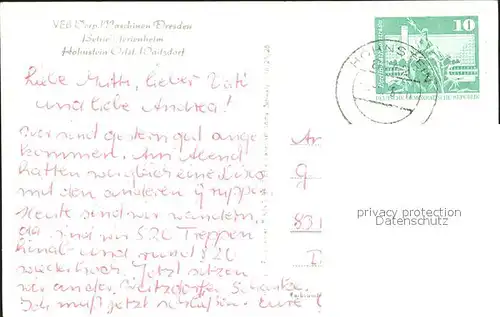 VEB Verp. Maschinen Dresden
Betr. Ferienheim
Hohnstein Ortsl. Waitzdorf
Liebe Mutti, lieber Vati
und liebe Andrea!
wir sind gestern gut ange
kommen. Am Abend
hatten wir gleich eine Disco
mit den anderen Gruppen.
Heute sind wir wandern,
da sind wir 820 Treppen
hinab und rund 820
wieder hoch. Jetzt sitzen
wir an der Waitzdorfer Schänke.
Ich muß jetzt schließen. Eure
10
HOHNSTEIN
DEUTSCHE DEMOKRATISCHE REPUBLIK
An
G
831
privacy protection
Datenschutz